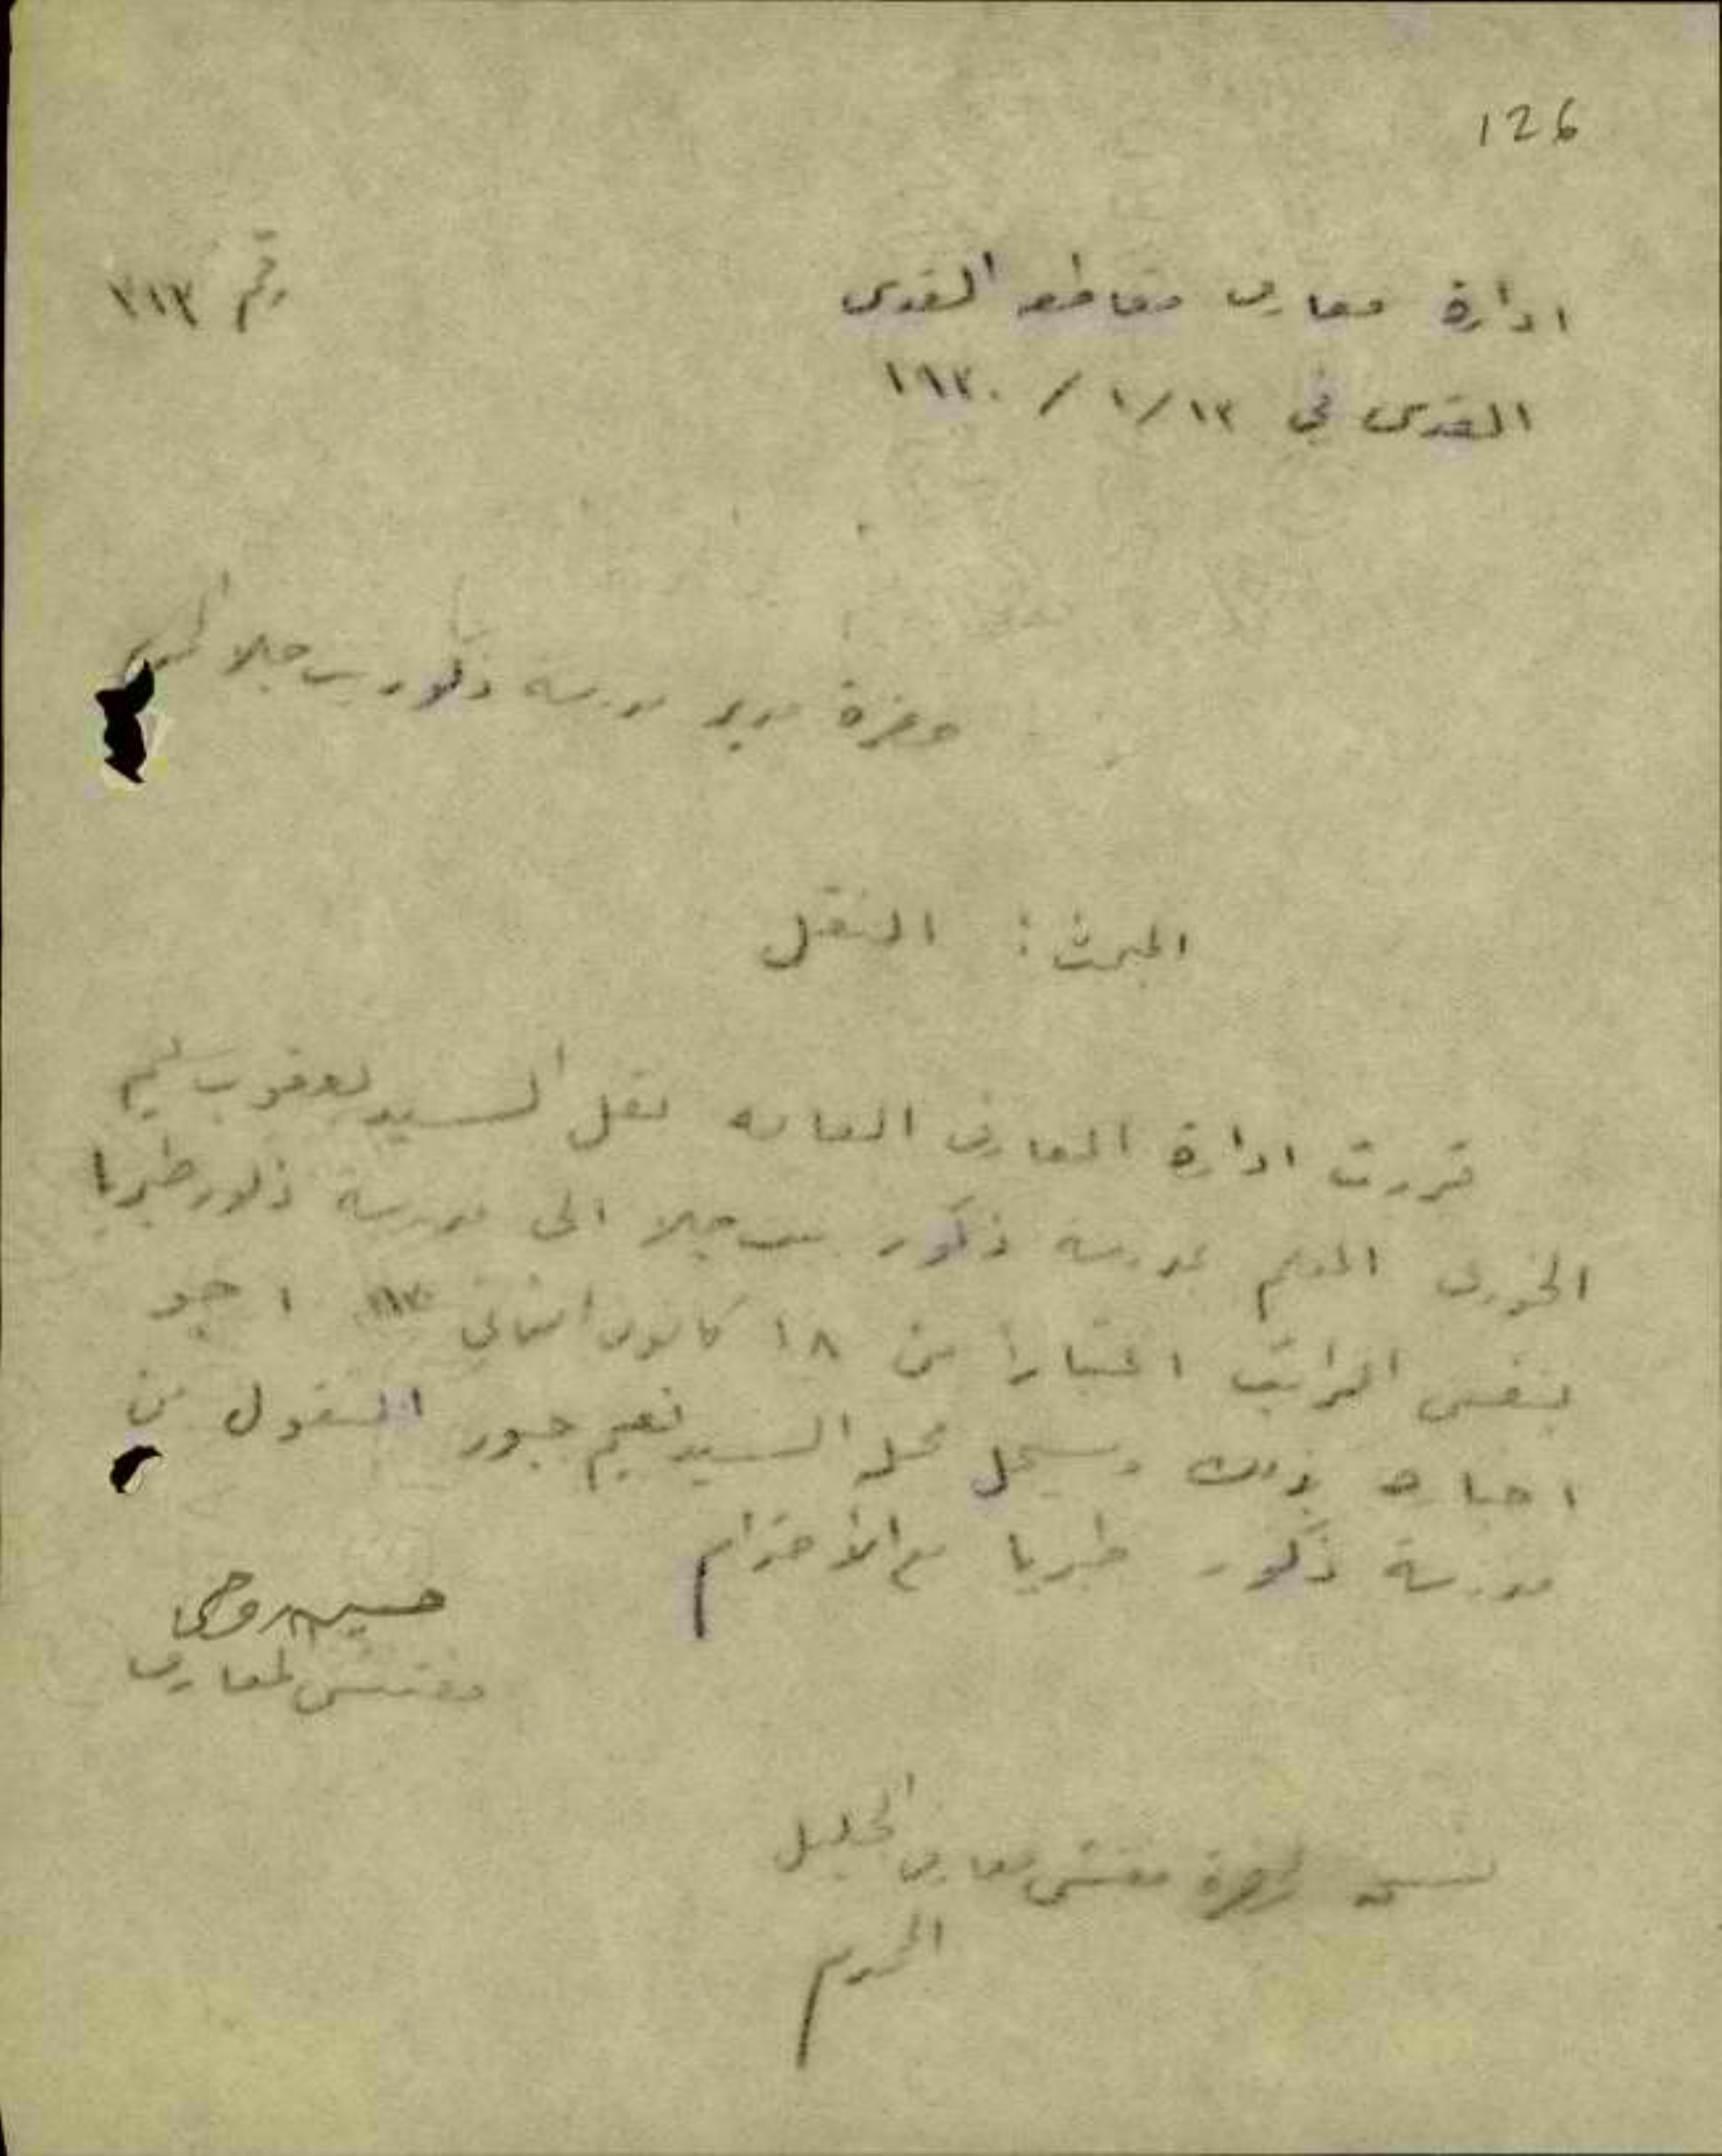 126
ادارة معارف مقاطعة القدس
رقم ٣١٣
القدس في ١٣/ ١/ ١٩٣٠
حضرة مدير مدرسة ذكور بيت جالا المحترم
المبحث : النقل
قررت ادارة المعارف العامه نقل السيد يعقوب سليم
الخوري المعلم بمدرسة ذكور بيت جالا الى مدرسة ذكور طبريا
بنفس الراتب اعتبارا من ١٨ كانون الثاني ٩٣٠ ارجو
اخباره بذلك وسيحل محله السيد نعيم جبور المنقول من
مدرسة ذكور طبريا مع الاحترام
حسين روحي
مفتش المعارف
نسخه لحضرة مفتش معارف الجليل
المحترم